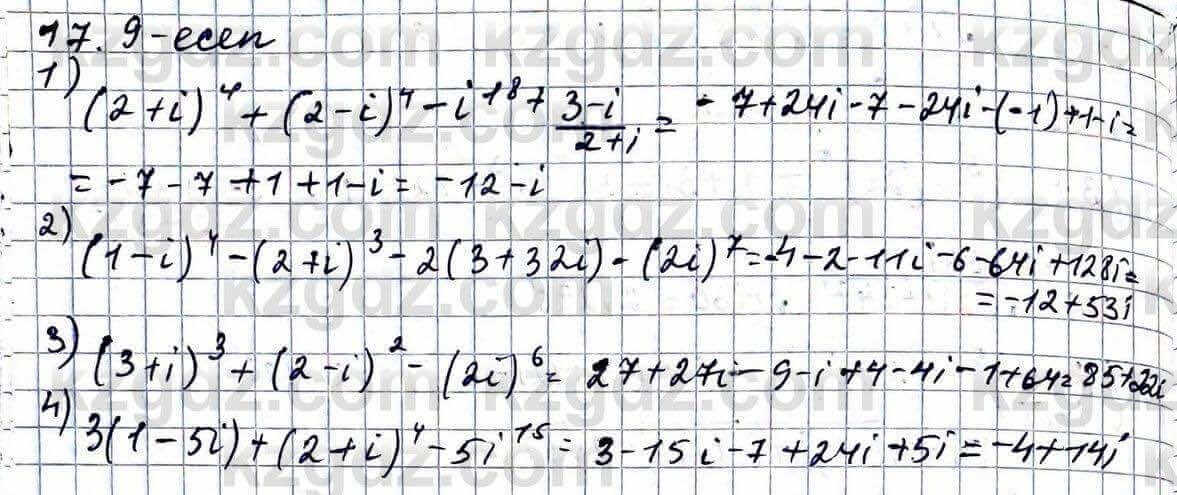 17.9-есеп
1)
(2+i)⁴ + (2-i)⁴ - i¹⁸ + (3-i)/(2+i) = -7+24i-7-24i-(-1)+1-i=
= -7-7+1+1-i = -12-i
2) (1-i)⁴ - (2+i)³ - 2(3+32i) - (2i)⁷ = -4-2-11i-6-64i+128i=
= -12+53i
3) (3+i)³ + (2-i)² - (2i)⁶ = 27+27i-9-i+4-4i-1+64=85+22i
4) 3(1-5i)+(2+i)⁴-5i¹⁵ = 3-15i-7+24i+5i=-4+14i
kzgdz.com